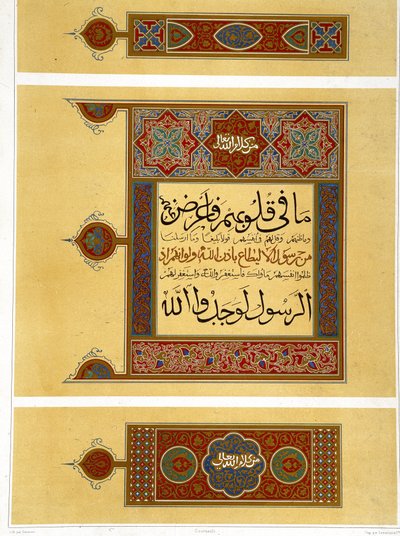 من كلام الله تعالى
ما في قلوبهم فأعرض عنهم
وعظهم وقل لهم في أنفسهم قولا بليغا وما أرسلنا
من رسول إلا ليطاع بإذن الله ولو أنهم إذ
ظلموا أنفسهم جاؤك فاستغفروا الله واستغفر لهم
الرسول لوجدوا الله
من كلام الله تعالى